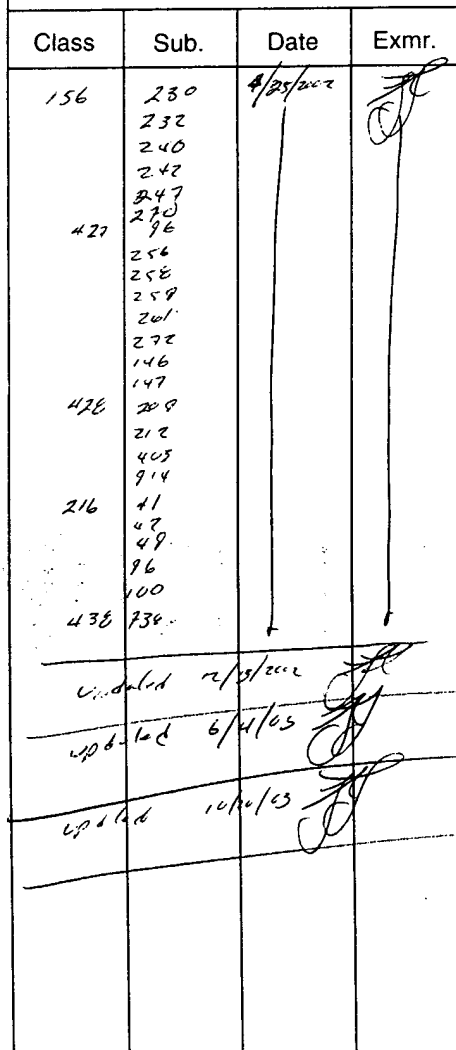 Class Sub. Date Exmr.
156 230 4/25/2002
232
240
242
247
270
427 96
256
258
259
261
272
146
147
428 209
212
403
914
216 41
42
49
96
100
438 738
updated 2/2002
updated 6/4/03
updated 10/03